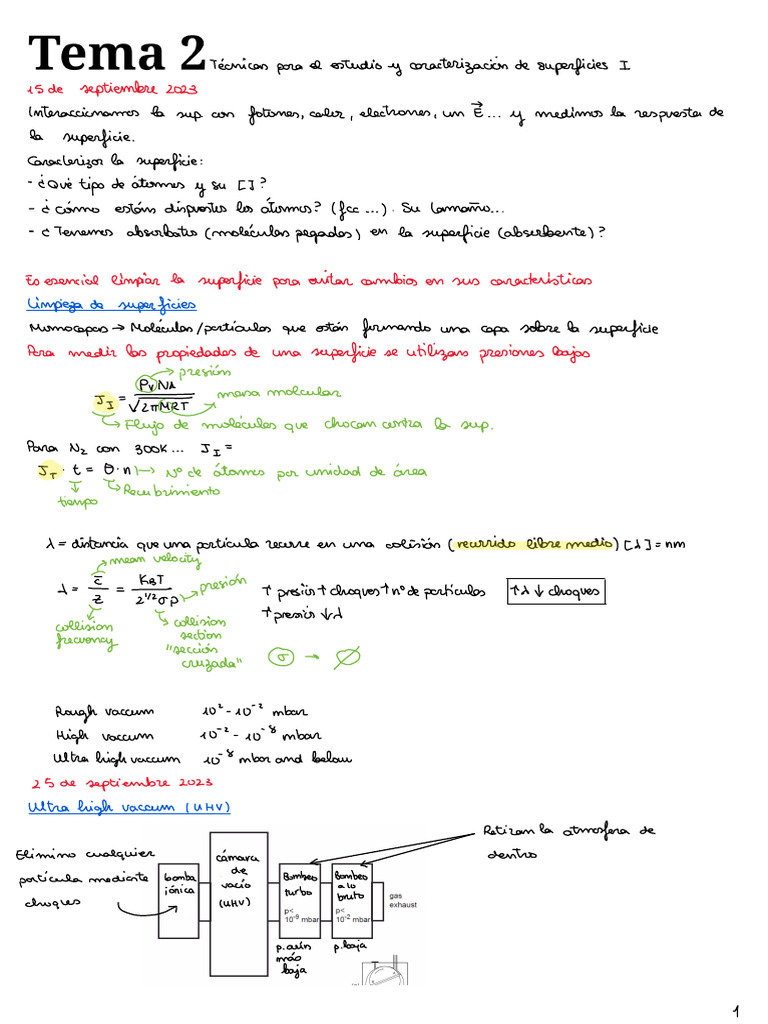 Tema 2 Técnicas para el estudio y caracterización de superficies I
15 de septiembre 2023
Interaccionamos la sup con fotones, calor, electrones, un E⃗ ... y medimos la respuesta de
la superficie.
Caracterizar la superficie:
- ¿Qué tipo de átomos y su []?
- ¿Cómo están dispuestos los átomos? (fcc ...). Su tamaño...
- ¿Tenemos absorbatos (moléculas pegadas) en la superficie (absorbente)?
Es esencial limpiar la superficie para evitar cambios en sus características
Limpieza de superficies
Monocapas → Moléculas/partículas que están formando una capa sobre la superficie
Para medir las propiedades de una superficie se utilizan presiones bajas
→ presión
J_I = P_V NA / √2πMRT
masa molecular
→ Flujo de moléculas que chocan contra la sup.
Para N₂ con 300K... J_I =
J_T · t = θ · n → Nº de átomos por unidad de área
→ Recubrimiento
tiempo
λ = distancia que una partícula recorre en una colisión (recorrido libre medio) [λ] = nm
→ mean velocity
λ = c̄ / z = K_BT / 2^1/2 σp → presión
↑ presión ↑ choques ↑ nº de partículas
↑λ ↓ choques
↑ presión ↓ λ
collision frecuency
→ collision section "sección cruzada"
σ →
Rough vaccum 10² - 10⁻² mbar
High vaccum 10⁻² - 10⁻⁸ mbar
Ultra high vaccum 10⁻⁸ mbar and below
25 de septiembre 2023
Ultra high vaccum (UHV)
Retiran la atmosfera de
dentro
Elimino cualquier
partícula mediante
choques
bomba
iónica
cámara
de
vacío
(UHV)
Bombeo
turbo
p<
10⁻⁹ mbar
Bombeo
a lo
bruto
p<
10⁻² mbar
gas
exhaust
p. aún
más
baja
p. baja
1